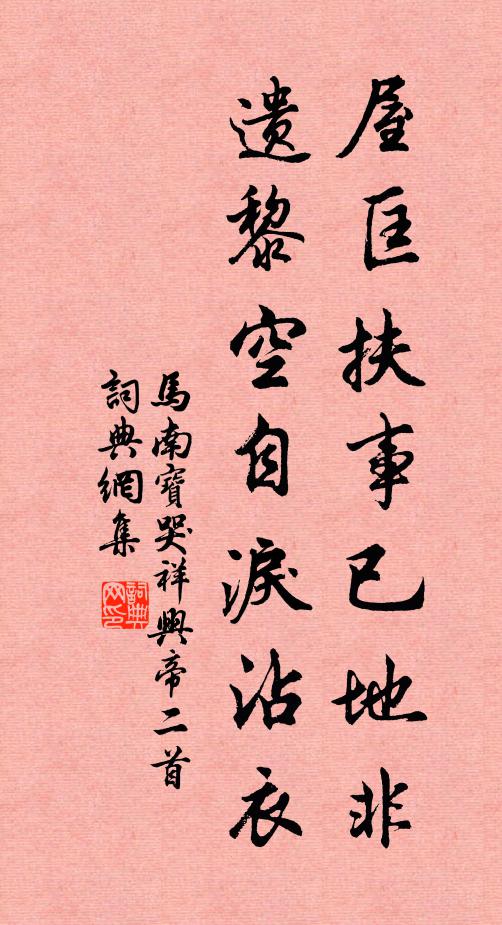 屋匡扶事已地非
遺黎空自淚沾衣
馬南寶哭祥興帝二首
詞典網集
詞典
网印